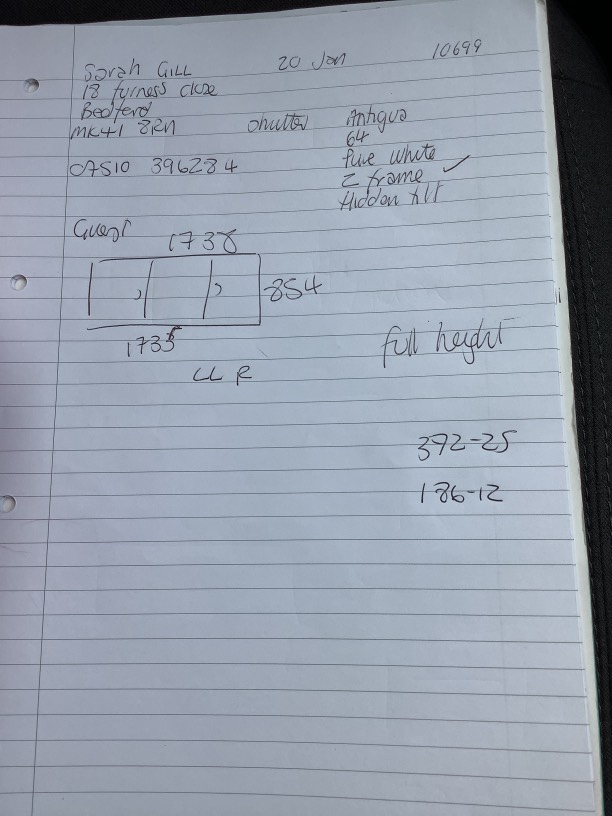 Sarah GILL 20 Jan 10699
18 furness close
Bedford
MK41 8RN Shutter Antigua
64
07510 396284 Pure White
Z frame ✓
Hidden tilt
Guest
1738
854
1735
full height
LL R
392-25
186-12